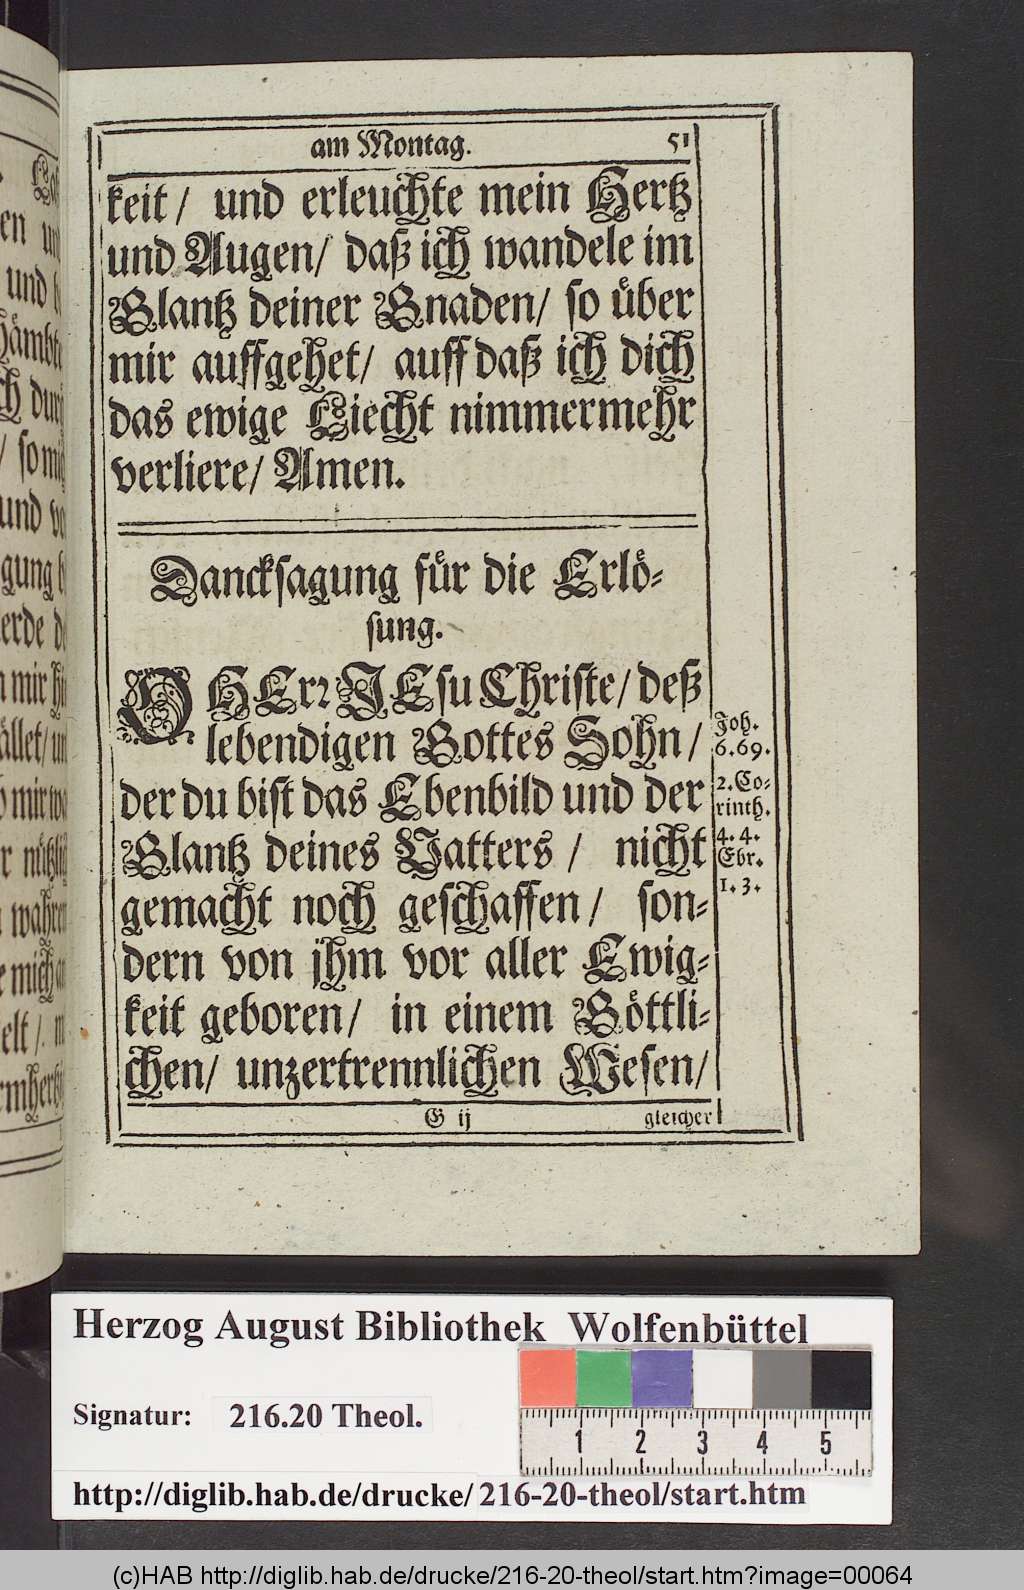 am Montag. 51
keit/ und erleuchte mein Hertz
und Augen/ daß ich wandele im
Glantz deiner Gnaden/ so über
mir auffgehet/ auff daß ich dich
das ewige Liecht nimmermehr
verliere/ Amen.
Dancksagung für die Erlö-
sung.
O HErr JEsu Christe/ deß
lebendigen Gottes Sohn/
der du bist das Ebenbild und der
Glantz deines Vatters/ nicht
gemacht noch geschaffen/ son-
dern von jhm vor aller Ewig-
keit geboren/ in einem Göttli-
chen/ unzertrennlichen Wesen/
Joh.
6.69.
2.Co-
rinth.
4.4.
Ebr.
1.3.
G ij gleicher
en
und
/ so
und
gung
erde
mir
Herzog August Bibliothek Wolfenbüttel
Signatur: 216.20 Theol.
1 2 3 4 5
http://diglib.hab.de/drucke/216-20-theol/start.htm
(c)HAB http://diglib.hab.de/drucke/216-20-theol/start.htm?image=00064